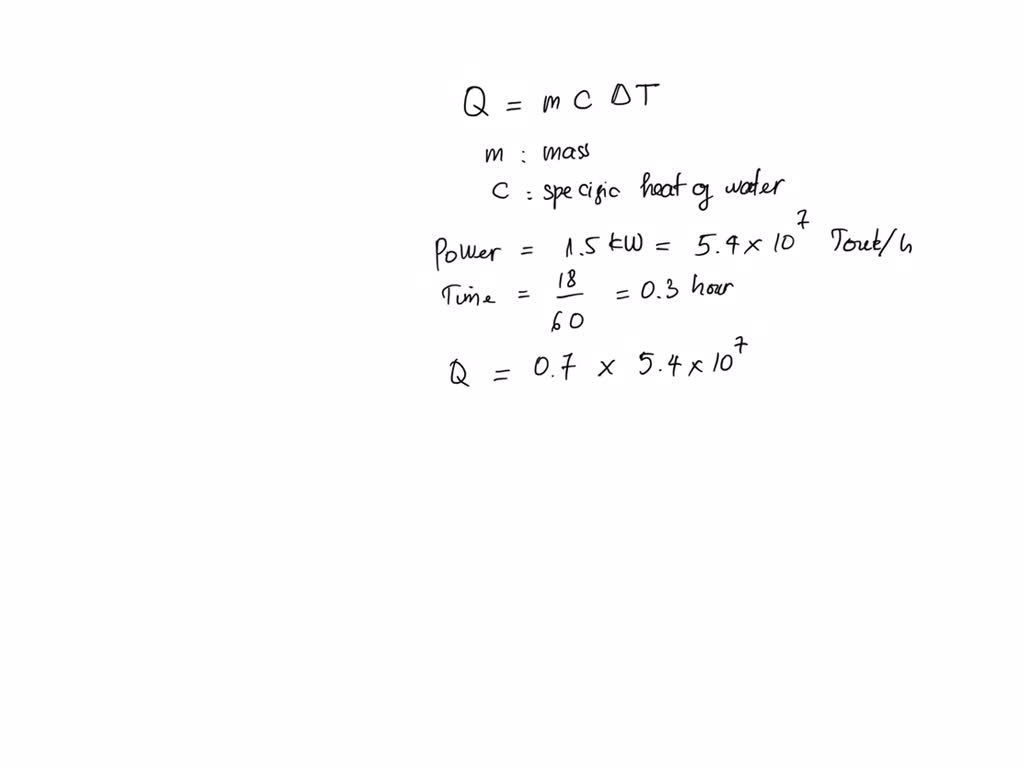 Q = m c ΔT
m : mass
c : specific heat of water
Power = 1.5 kW = 5.4 × 10^7 /h
Time = 18/60 = 0.3 hour
Q = 0.7 × 5.4 × 10^7